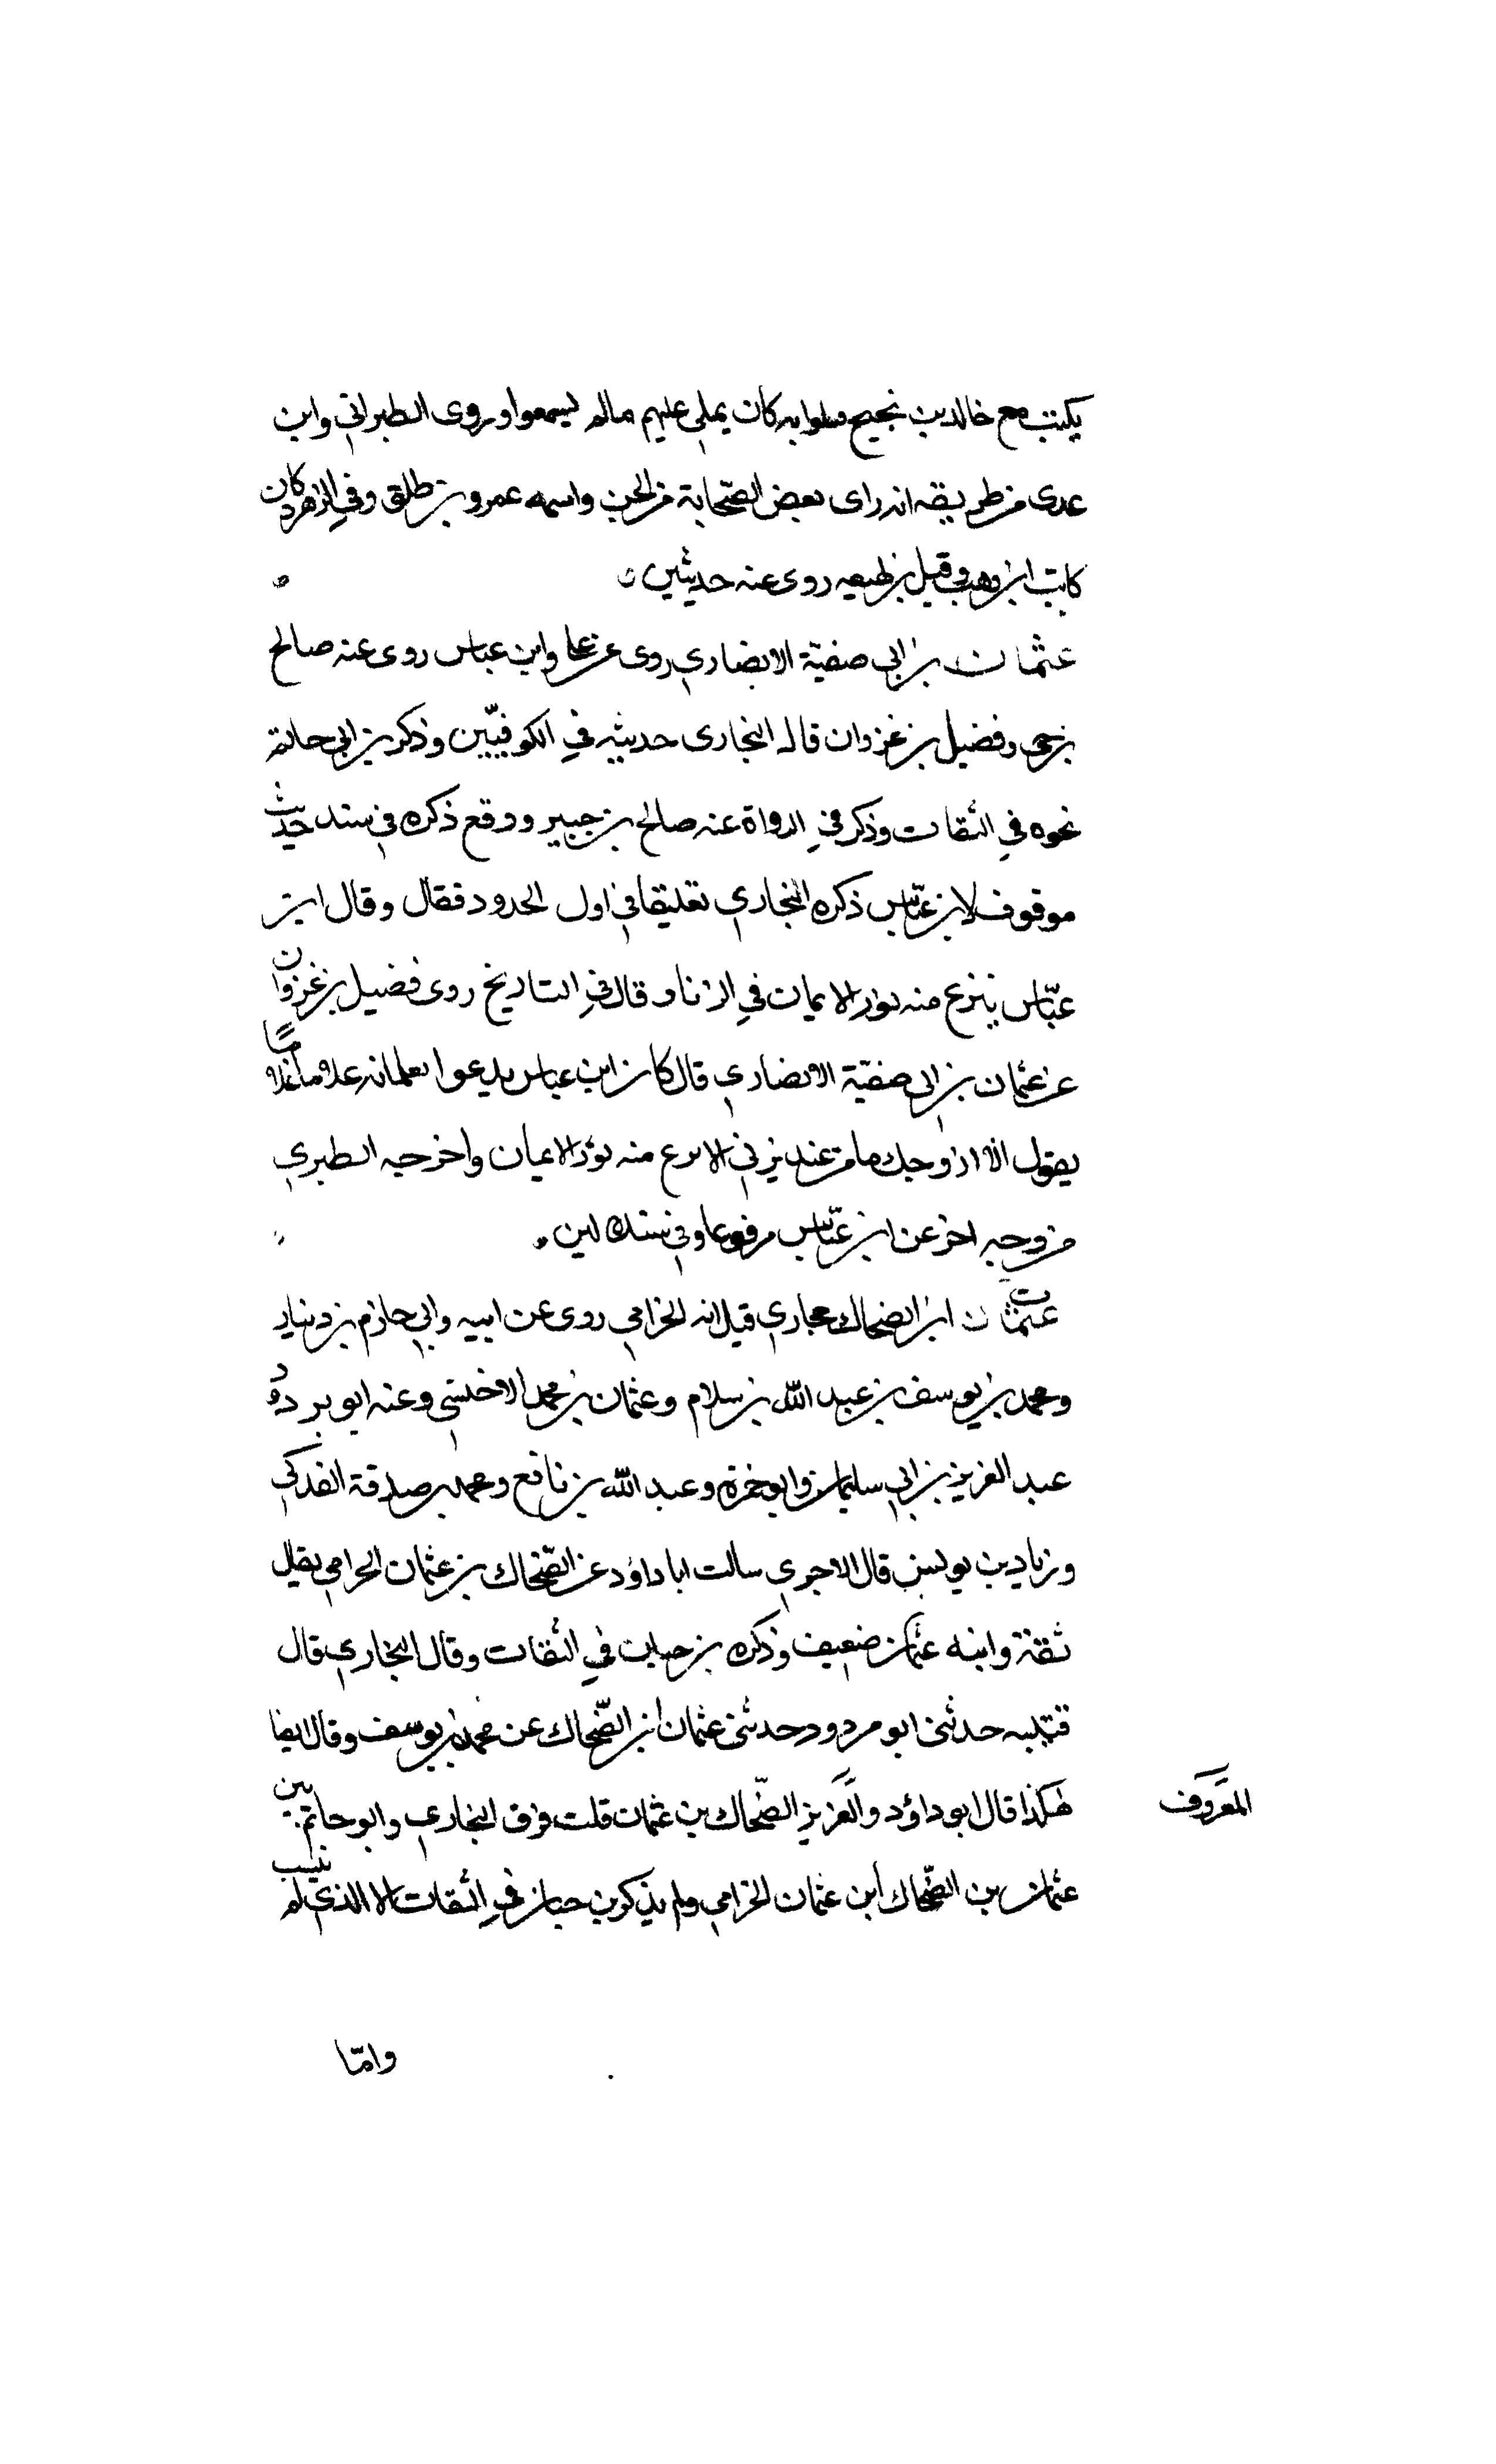 يكتب مع خالد بن نجيح فبلوا به كان يملي عليهم مالم ليسمعوا وروى الطبراني وابن
عدى من طريقه انه راى بعض الصّحابة من الجن واسمه عمرو بن طلق وفي الزهرة كان
كاتب ابن وهب وقيل بن لهيعه روى عنه حديثين
عثمان بن ابي صفيّة الانصاري روى عن على وابن عباس روى عنه صالح
بن حى وفضيل بن غزوان قاله البخارى حديثه في الكوفيّين وذكر بن ابي حاتم
نحوه في الثقات وذكر في الرواة عنه صالح بن جبير ووقع ذكره في سند حديث
موقوف لابن عبّاس ذكره البخاري تعليقا في اول الحدود فقال وقال ابن
عبّاس ينزع منه نور الايمان في الزنا وقال في التاريخ روى فضيل بن غزوان
عن عثمان بن ابى صفيّة الانصاري قال كان ابن عباس يدعوا بغلمانه غلاما غلاما
يقول الا ازوجك ما من عبد يزني الا نزع منه نور الايمان واخرجه الطبري
من وجه اخر عن ابن عبّاس مرفوعا وفي سنده لين
ت
عثمان ابن الضحاك حجازي قيل انه الخزامي روى عن ابيه وابي حازم بن دينار
ومحمد بن يوسف بن عبد الله بن سلام وعثمان بن محمد الاخنسي وعنه ابو مردود
عبد العزيز بن ابي سليمان وابو ضمرة وعبد الله بن نافع ومحمد بن صدقة الفدكي
وزياد بن يونس قال الاجري سالت ابا داؤد عن الضّحاك بن عثمان الحزامي فقال
ثقة وابنه عثمان ضعيف وذكره بن حبان في الثقات وقال البخاري قال
قتيبه حدثنى ابو مردود حدثنى عثمان ابن الضّحاك عن محمد بن يوسف وقال ايضا
هكذا قال ابو داؤد والعزيز الضّحاك بن عثمان قلت فرق البخاري وابو حاتم بين
المعروف
عثمان بن الضّحاك ابن عثمان الخزامي ولم يذكر بن حبان في الثقات الا الذي لم ينسب
وامّا